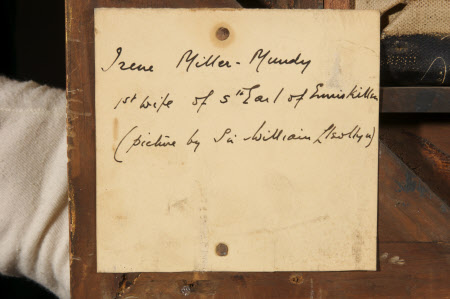 Irene Miller-Mundy
1st wife of 5th Earl of Enniskillen
(picture by Sir William Llewellyn)